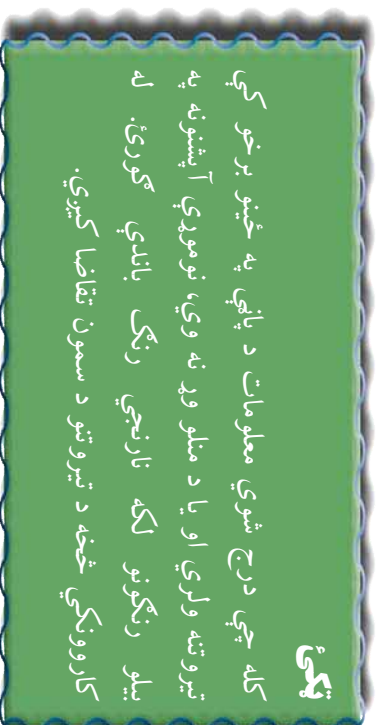 ټکئ
کله چې درج شوي معلومات د پاڼې په ځينو برخو کې
تېروتنه ولري او يا د منلو وړ نه وي، نوموړې آپشنونه په
بېلو رنګونو لکه نارنجي رنګ باندې ګورئ. له
کاروونکي څخه د تېروتنو د سمون تقاضا کيږي.